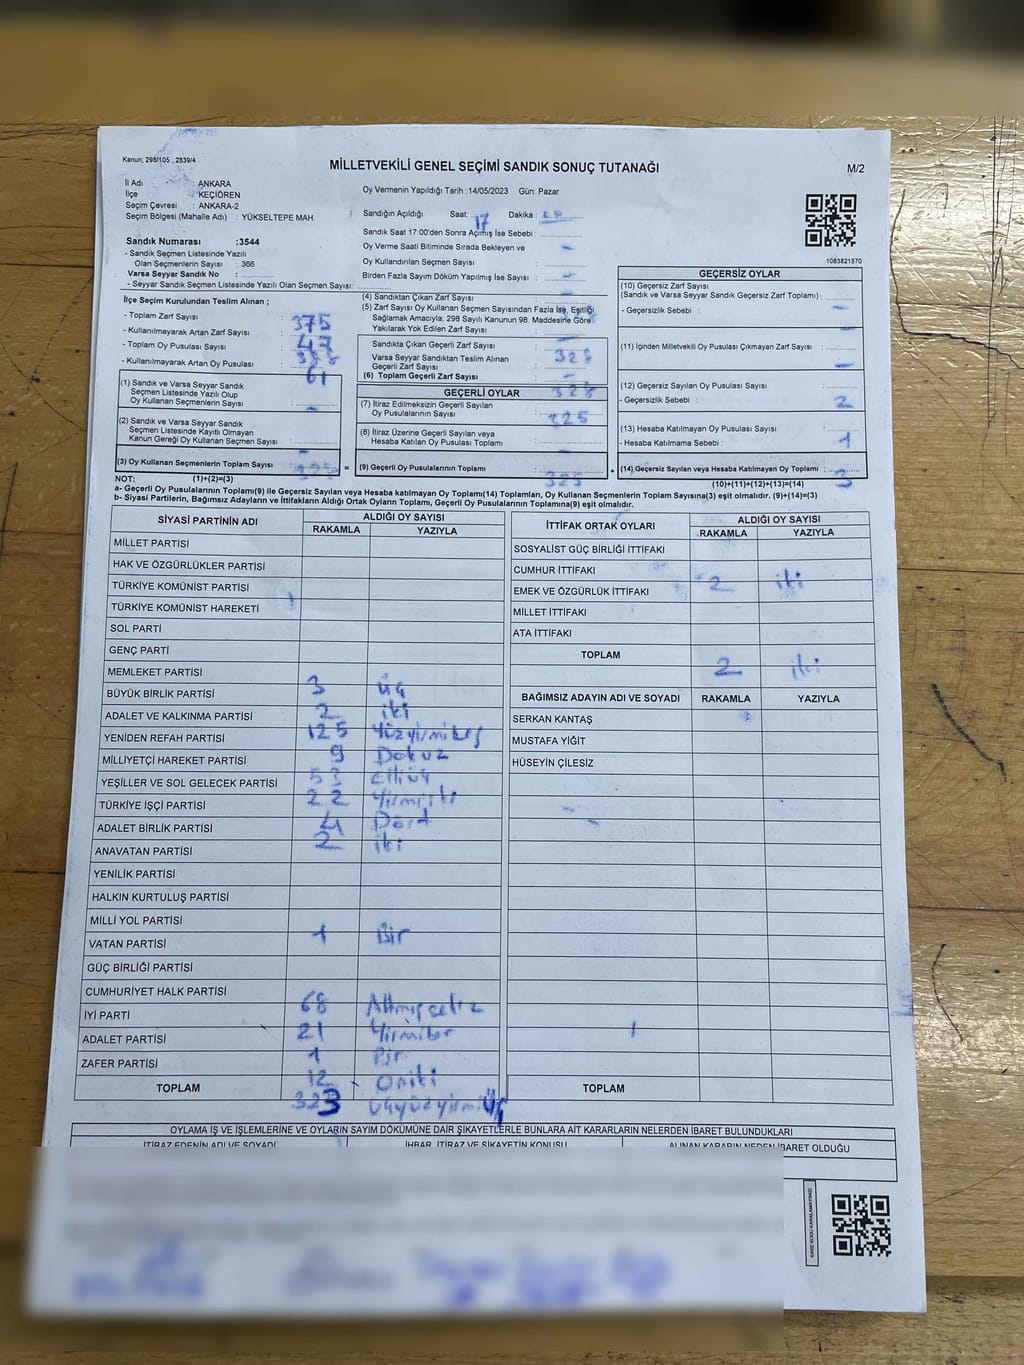 Kanun; 298/105 , 2839/4
MİLLETVEKİLİ GENEL SEÇİMİ SANDIK SONUÇ TUTANAĞI
M/2
İl Adı : ANKARA
İlçe : KEÇİÖREN
Seçim Çevresi : ANKARA-2
Seçim Bölgesi (Mahalle Adı) : YÜKSELTEPE MAH.
Oy Vermenin Yapıldığı Tarih :14/05/2023 Gün: Pazar
Sandığın Açıldığı Saat: 17 Dakika :
Sandık Saat 17:00'den Sonra Açılmış İse Sebebi :
Oy Verme Saati Bitiminde Sırada Bekleyen ve
Oy Kullandırılan Seçmen Sayısı :
Birden Fazla Sayım Döküm Yapılmış İse Sayısı :
1083821570
Sandık Numarası :3544
- Sandık Seçmen Listesinde Yazılı
Olan Seçmenlerin Sayısı : 366
Varsa Seyyar Sandık No :
- Seyyar Sandık Seçmen Listesinde Yazılı Olan Seçmen Sayısı:
İlçe Seçim Kurulundan Teslim Alınan ;
- Toplam Zarf Sayısı : 375
- Kullanılmayarak Artan Zarf Sayısı : 47
- Toplam Oy Pusulası Sayısı :
- Kullanılmayarak Artan Oy Pusulası : 61
(1) Sandık ve Varsa Seyyar Sandık
Seçmen Listesinde Yazılı Olup
Oy Kullanan Seçmenlerin Sayısı :
(2) Sandık ve Varsa Seyyar Sandık
Seçmen Listesinde Kayıtlı Olmayan
Kanun Gereği Oy Kullanan Seçmen Sayısı :
(3) Oy Kullanan Seçmenlerin Toplam Sayısı :
(4) Sandıktan Çıkan Zarf Sayısı :
(5) Zarf Sayısı Oy Kullanan Seçmen Sayısından Fazla İse, Eşitliği
Sağlamak Amacıyla; 298 Sayılı Kanunun 98. Maddesine Göre
Yakılarak Yok Edilen Zarf Sayısı :
Sandıkta Çıkan Geçerli Zarf Sayısı : 328
Varsa Seyyar Sandıktan Teslim Alınan
Geçerli Zarf Sayısı :
(6) Toplam Geçerli Zarf Sayısı : 328
GEÇERLİ OYLAR
(7) İtiraz Edilmeksizin Geçerli Sayılan
Oy Pusulalarının Sayısı : 325
(8) İtiraz Üzerine Geçerli Sayılan veya
Hesaba Katılan Oy Pusulası Toplamı :
= (9) Geçerli Oy Pusulalarının Toplamı : 325
GEÇERSİZ OYLAR
(10) Geçersiz Zarf Sayısı
(Sandık ve Varsa Seyyar Sandık Geçersiz Zarf Toplamı) :
- Geçersizlik Sebebi :
(11) İçinden Milletvekili Oy Pusulası Çıkmayan Zarf Sayısı :
(12) Geçersiz Sayılan Oy Pusulası Sayısı :
- Geçersizlik Sebebi : 2
(13) Hesaba Katılmayan Oy Pusulası Sayısı :
- Hesaba Katılmama Sebebi : 1
+ (14) Geçersiz Sayılan veya Hesaba Katılmayan Oy Toplamı : 3
NOT: (1)+(2)=(3)
(10)+(11)+(12)+(13)=(14)
a- Geçerli Oy Pusulalarının Toplamı(9) ile Geçersiz Sayılan veya Hesaba katılmayan Oy Toplamı(14) Toplamları, Oy Kullanan Seçmenlerin Toplam Sayısına(3) eşit olmalıdır. (9)+(14)=(3)
b- Siyasi Partilerin, Bağımsız Adayların ve İttifakların Aldığı Ortak Oyların Toplamı, Geçerli Oy Pusulalarının Toplamına(9) eşit olmalıdır.
SİYASİ PARTİNİN ADI ALDIĞI OY SAYISI
RAKAMLA YAZIYLA
MİLLET PARTİSİ
HAK VE ÖZGÜRLÜKLER PARTİSİ
TÜRKİYE KOMÜNİST PARTİSİ
TÜRKİYE KOMÜNİST HAREKETİ
SOL PARTİ
GENÇ PARTİ
MEMLEKET PARTİSİ
BÜYÜK BİRLİK PARTİSİ 3 üç
ADALET VE KALKINMA PARTİSİ 2 iki
YENİDEN REFAH PARTİSİ 125 Yüzyirmibeş
MİLLİYETÇİ HAREKET PARTİSİ 9 Dokuz
YEŞİLLER VE SOL GELECEK PARTİSİ 53 Elliüç
TÜRKİYE İŞÇİ PARTİSİ 22 Yirmiiki
ADALET BİRLİK PARTİSİ 4 Dört
ANAVATAN PARTİSİ 2 iki
YENİLİK PARTİSİ
HALKIN KURTULUŞ PARTİSİ
MİLLİ YOL PARTİSİ
VATAN PARTİSİ 1 Bir
GÜÇ BİRLİĞİ PARTİSİ
CUMHURİYET HALK PARTİSİ
İYİ PARTİ 68 Altmışsekiz
ADALET PARTİSİ 21 Yirmibir
ZAFER PARTİSİ 1 Bir
12 Oniki
TOPLAM 323 üçyüzyirmiüç
İTTİFAK ORTAK OYLARI ALDIĞI OY SAYISI
RAKAMLA YAZIYLA
SOSYALİST GÜÇ BİRLİĞİ İTTİFAKI
CUMHUR İTTİFAKI
EMEK VE ÖZGÜRLÜK İTTİFAKI 2 iki
MİLLET İTTİFAKI
ATA İTTİFAKI
TOPLAM 2 iki
BAĞIMSIZ ADAYIN ADI VE SOYADI RAKAMLA YAZIYLA
SERKAN KANTAŞ
MUSTAFA YİĞİT
HÜSEYİN ÇİLESİZ
TOPLAM
OYLAMA İŞ VE İŞLEMLERİNE VE OYLARIN SAYIM DÖKÜMÜNE DAİR ŞİKAYETLERLE BUNLARA AİT KARARLARIN NELERDEN İBARET BULUNDUKLARI
İTİRAZ EDENİN ADI VE SOYADI İHBAR, İTİRAZ VE ŞİKAYETİN KONUSU ALINAN KARARIN NEDEN İBARET OLDUĞU
KARE KODU KARALAMAYINIZ!